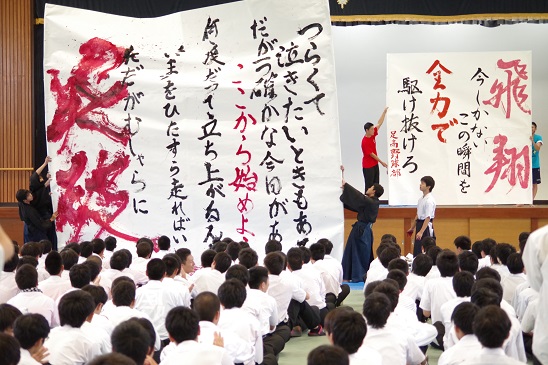 つらくて
泣きたいときもあ
確かな今日があ
ここから始めよ
何度だって立ち上がるん
いまをひたすら走ればい
ただがむしゃらに
飛翔
今しかない
この瞬間を
全力で
駆け抜けろ
足高野球部